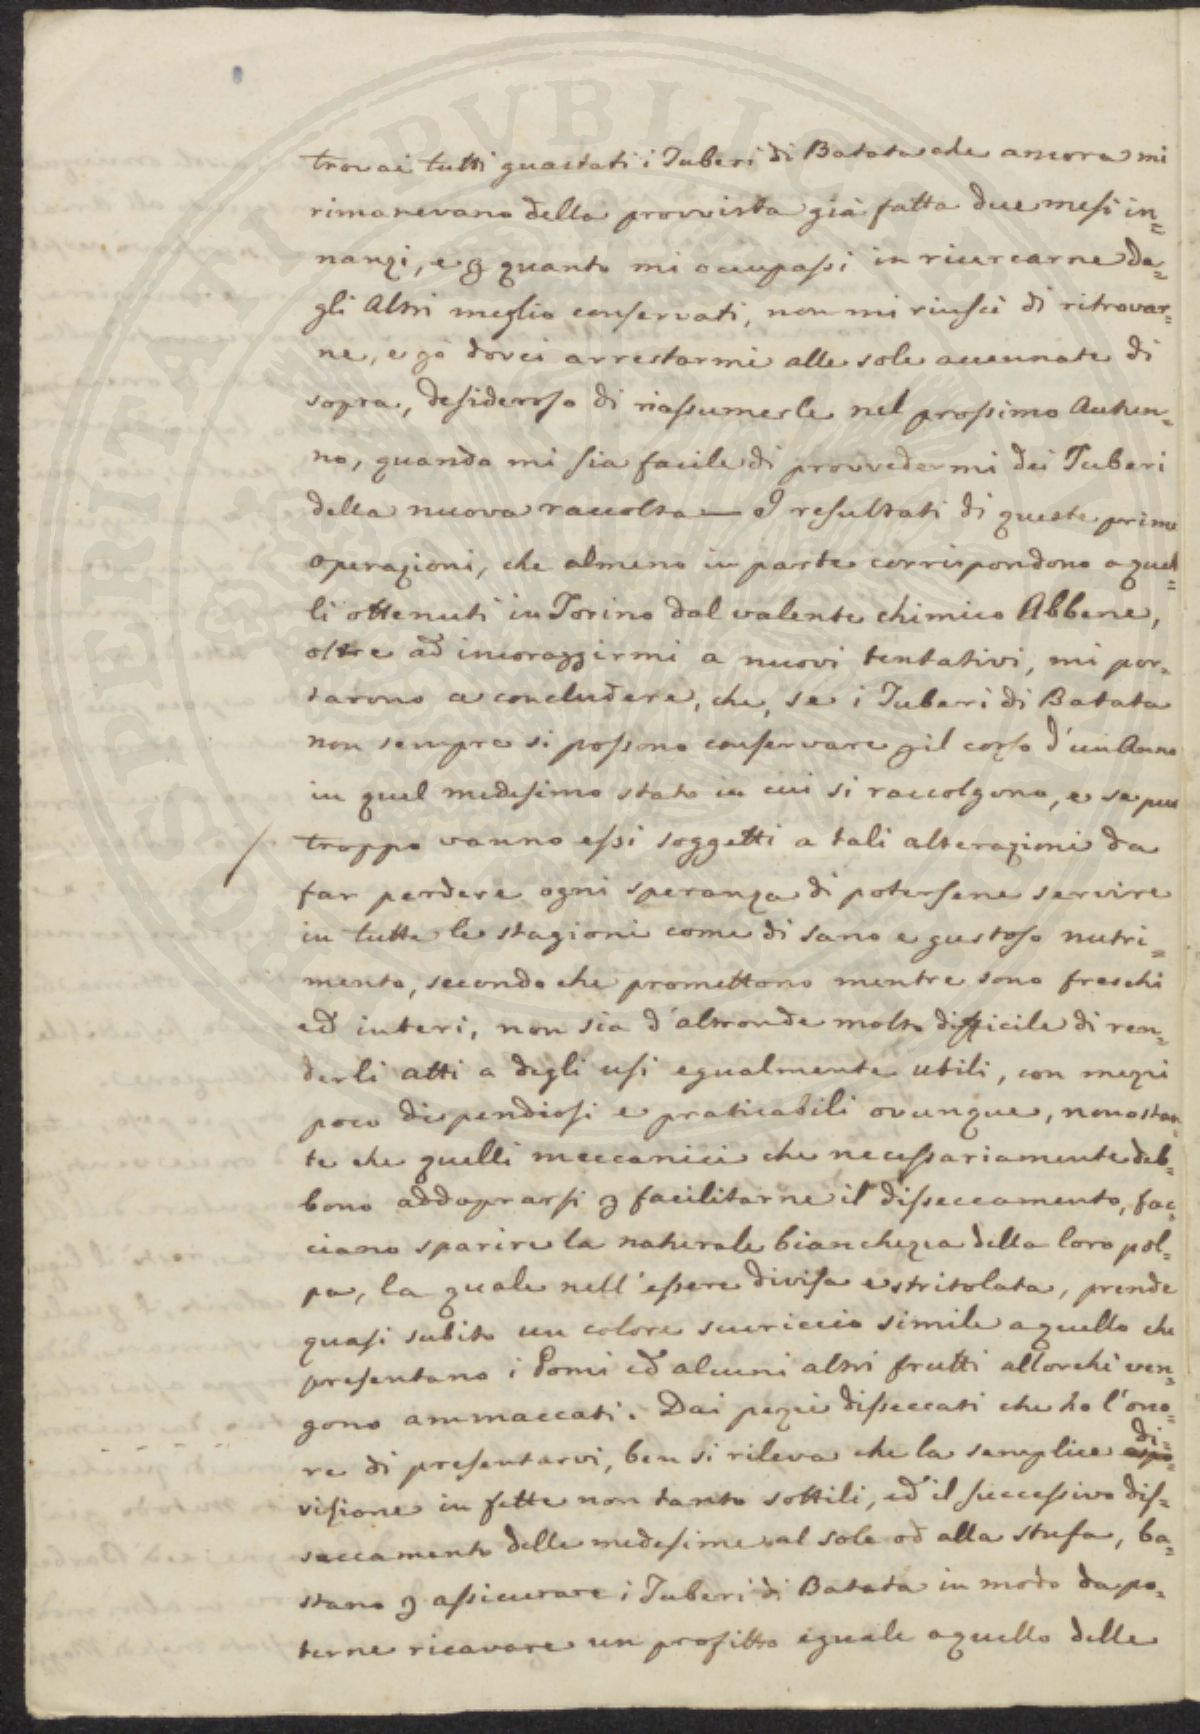 trovai tutti guastati i Tuberi di Batata che ancora mi
rimanevano della provvista già fatta due mesi in=
nanzi, e p quanto mi occupassi in ricercarne de=
gli Altri meglio conservati, non mi riuscì di ritrovar=
ne, e pò dovei arrestarmi alle sole accennate di
sopra, desideroso di riassumerle nel prossimo Autun=
no, quando mi sia facile di provvedermi dei Tuberi
della nuova raccolta — I resultati di queste prime
operazioni, che almeno in parte corrispondono a quel=
li ottenuti in Torino dal valente chimico Abbene,
oltre ad incoraggirmi a nuovi tentativi, mi por=
tarono a concludere, che, se i Tuberi di Batata
non sempre si possono conservare p il corso d'un Anno
in quel medesimo stato in cui si raccolgono, e se pur
troppo vanno essi soggetti a tali alterazioni da
far perdere ogni speranza di potersene servire
in tutte le stagioni come di sano e gustoso nutri=
mento, secondo che promettono mentre sono freschi
ed interi, non sia d'altronde molto difficile di ren=
derli atti a degli usi egualmente utili, con mezzi
poco dispendiosi e praticabili ovunque, nonostan=
te che quelli meccanici che necessariamente deb=
bono addoprarsi p facilitarne il disseccamento, fac=
ciano sparire la naturale bianchezza della loro pol=
pa, la quale nell'essere divisa e stritolata, prende
quasi subito un colore scuriccio simile a quello che
presentano i Pomi ed alcuni altri frutti allorchè ven=
gono ammaccati. Dai pezzi disseccati che ho l'ono=
re di presentarvi, ben si rileva che la semplice di=
visione in fette non tanto sottili, ed il successivo dis=
seccamento delle medesime al sole od alla stufa, ba=
stano p assicurare i Tuberi di Batata in modo da po=
terne ricavare un profitto eguale a quello delle